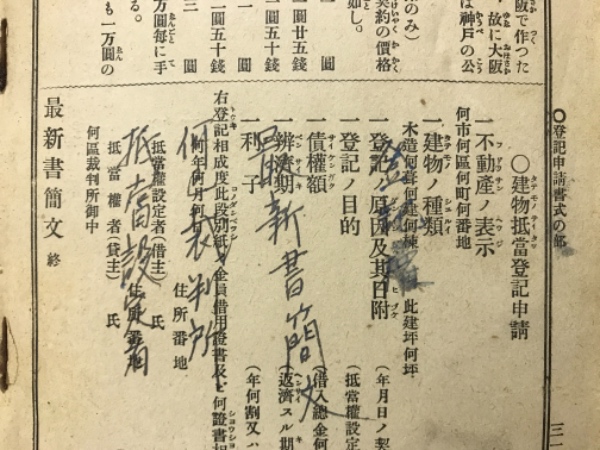 〇登記申請書式の部
阪で作つた
故に大阪
は神戸の公
のみ)
契約の價格
如し。
一圓
一圓廿五錢
一圓五十錢
一圓五十錢
三圓
万圓每に手
る。
も一万圓の
〇建物抵當登記申請
一不動產ノ表示
何市何區何町何番地
一建物ノ種類
木造何葺何建何棟 此建坪何坪
一登記ノ原因及其日附 (年月日ノ契
一登記ノ目的 (抵當權設定
一債權額 (借入總金何
一辨濟期 (返濟スル期
一利子 (年何割又ハ
右登記相成度此段別紙ノ金員借用證書及ビ何證書相
何年何月何日
住所番地
抵當權設定者(借主) 氏
住所番地
抵當權者(貸主) 氏
何區裁判所御中
最新書簡文 終
最新書簡文
何裁判所
抵當設定者